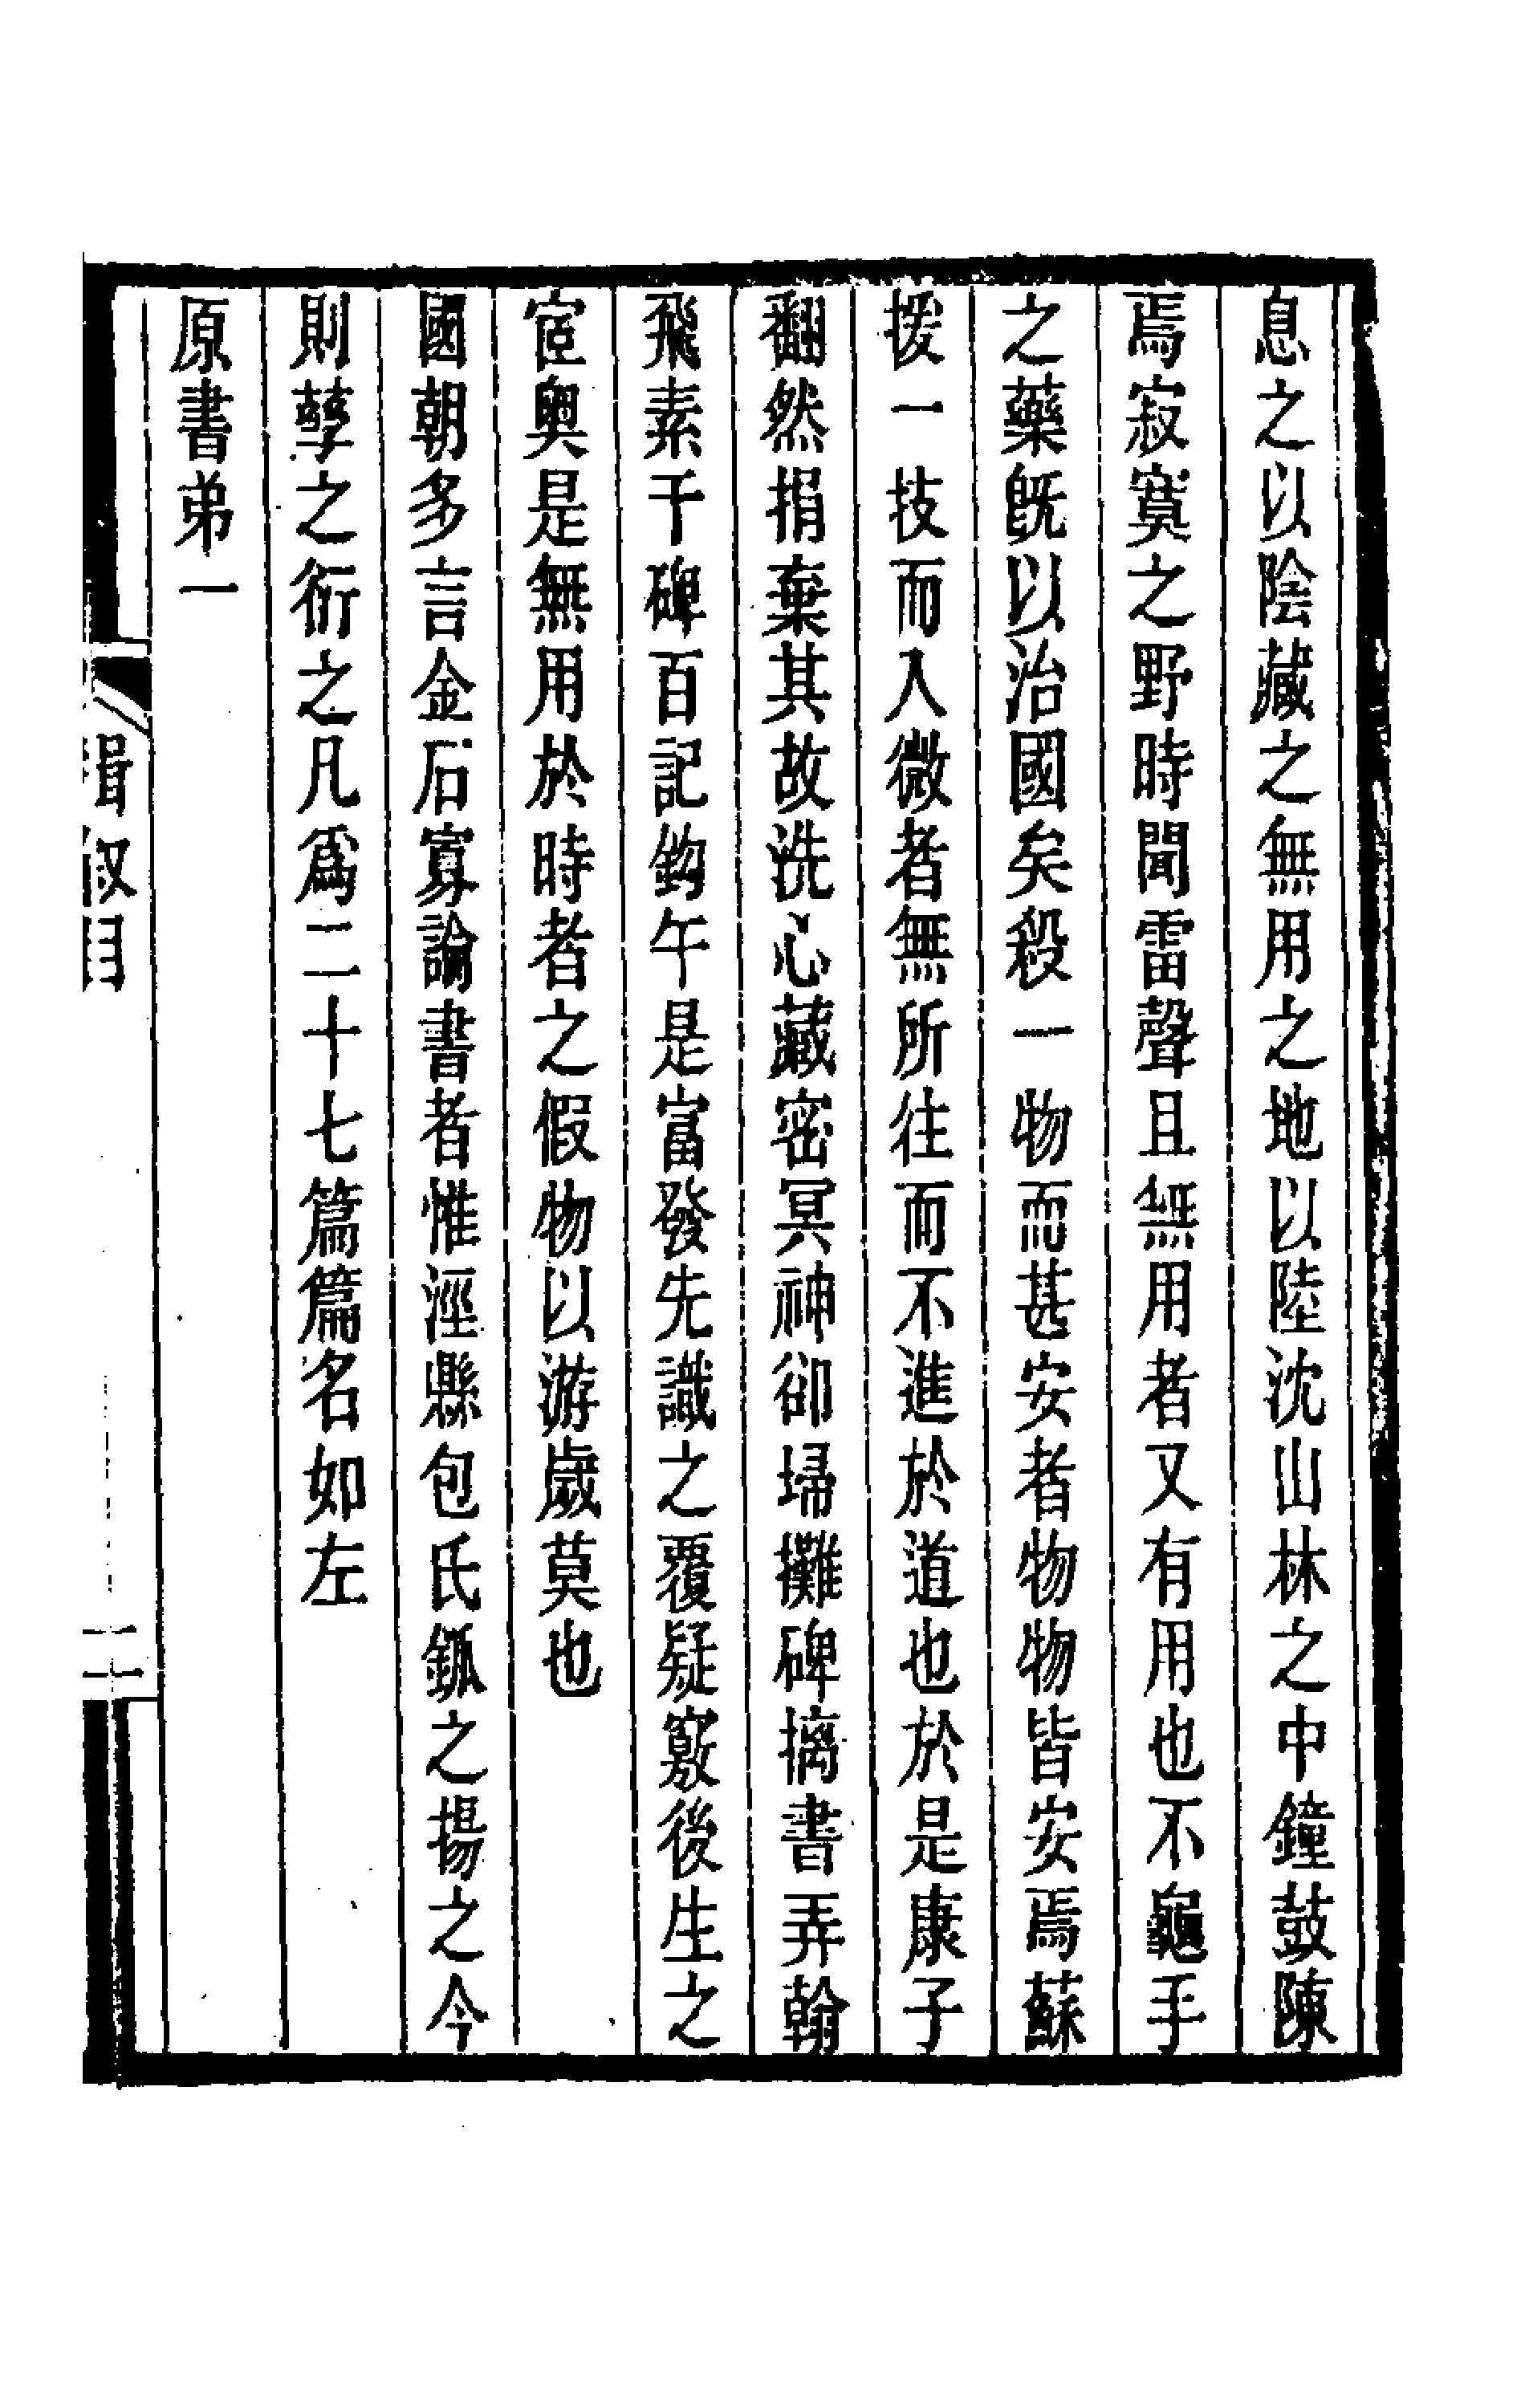 息之以陰藏之無用之地以陸沈山林之中鐘鼓陳
焉寂寞之野時聞雷聲且無用者又有用也不龜手
之藥旣以治國矣殺一物而甚安者物物皆安焉蘇
援一技而入微者無所往而不進於道也於是康子
翻然捐棄其故洗心藏密冥神卻埽攤碑摛書弄翰
飛素千碑百記鉤午是富發先識之覆疑竅後生之
宧奧是無用於時者之假物以游歲莫也
國朝多言金石寡論書者惟涇縣包氏鈲之揚之今
則孳之衍之凡爲二十七篇篇名如左
原書弟一
楫叙目
二